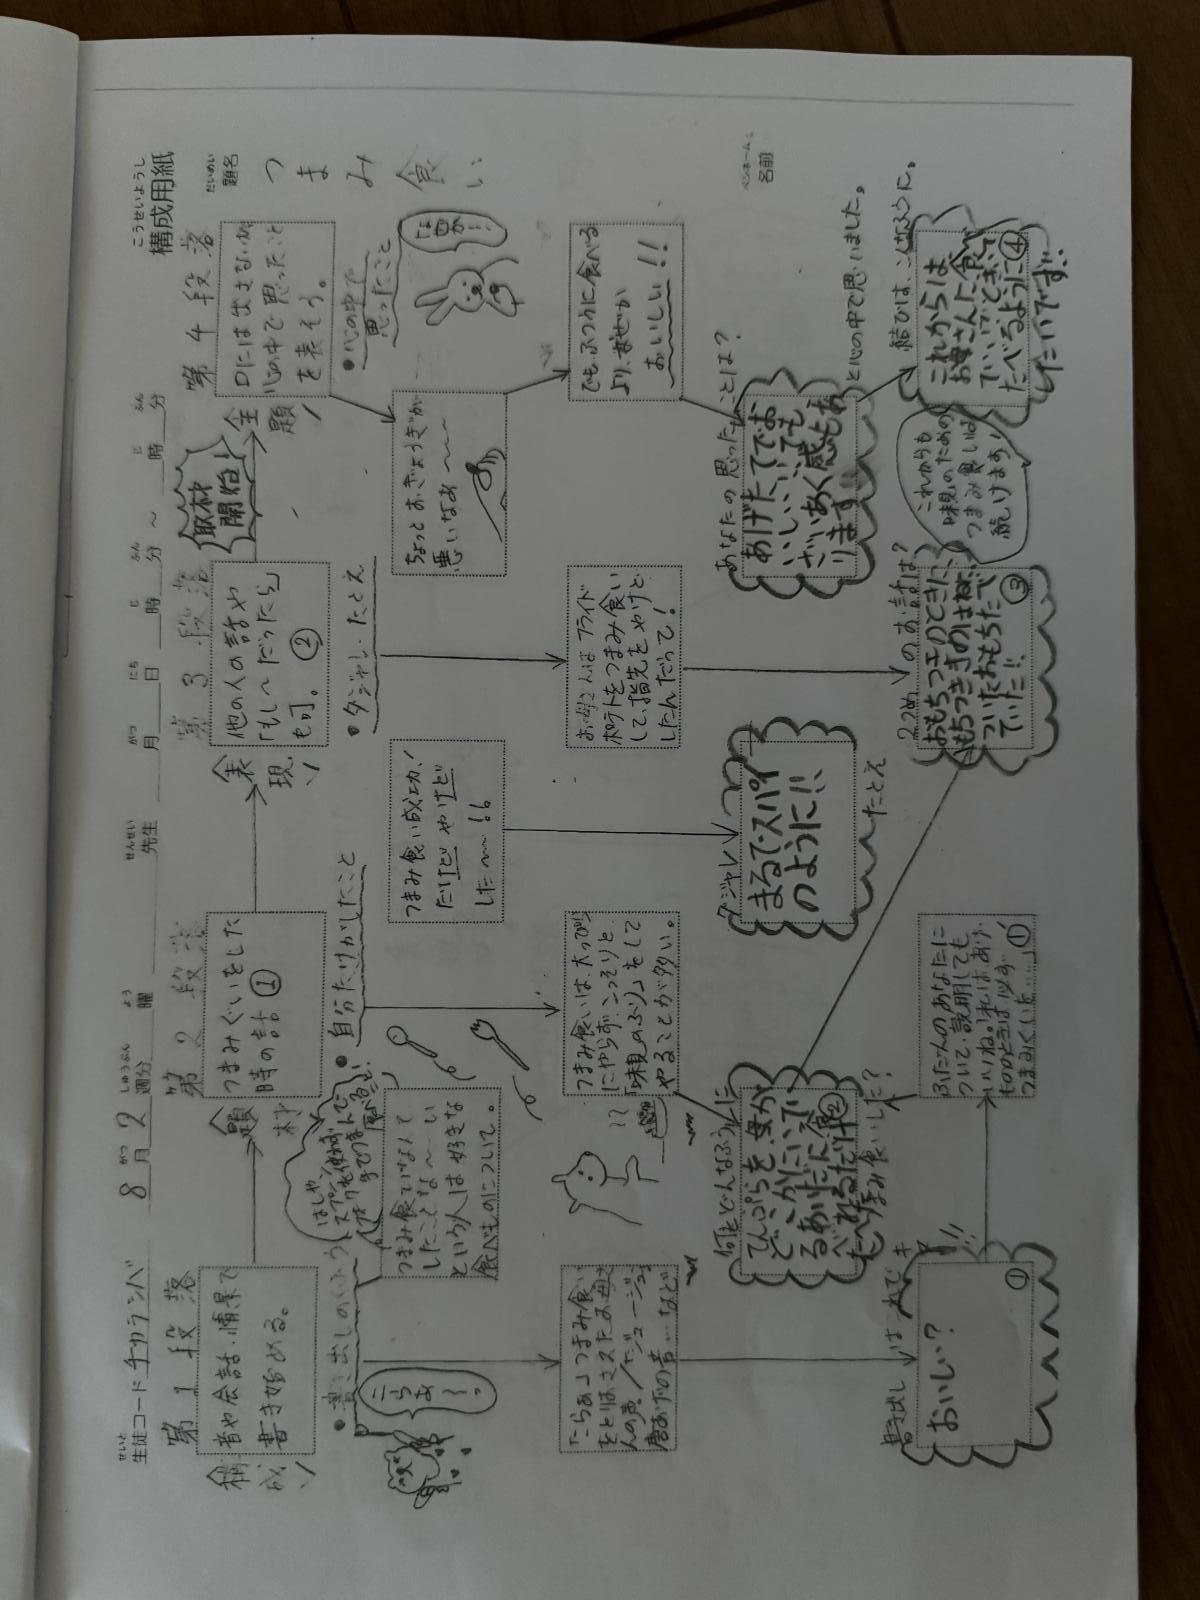 こうせいようし
構成用紙
だいめい
題名
つまみ食い
ペンネーム
名前
せいと
生徒コード チカランバ
8月2週分
がつ
しゅうぶん
よう
曜
せんせい
先生
がつ
月
にち
日
じ
時
ふん
分
～
じ
時
ふん
分
第1段落
構成
音や会話・情景で
書き始める。
• 書き出しのくふう
こらぁ～。
「こらぁっ」つまみ食い
をとりおさえたお母さ
んの声／「ジュージュー」
唐あげの音…など
書き出しは
おいしい?
①
第2段落
題材
つまみぐいをした
時の話①
• 自分だけがしたこと
はしや
スプーン、
フォークを使わず、
手でつまんで
食べること
つまみ食いなんて
したことな～い
という人は好きな
食べものについて。
つまみ食いは、大っぴら
にやらず、こっそりと
「味見のふり」をして
やることが多い。
何をどんなふうに
てんぷらを、母が
どこかにいってい
るあいだに、食
べれるだけ
たべた②
つまみ食いした?
ふだんのあなたに
ついて、説明しても
いいね。「ぼくはあげ
もののときは必ず
つまみぐいを……」①´
第3段落
表現
他の人の話や
「もし～だったら」
も可。②
• ダジャレ・たとえ
つまみ食い成功!
だけどやけど
した～!!
お母さんはフライド
ポテトをつまみ食い
して、指先をやけど
したんだって!
ダジャレ
まるでスパイ
のように!!
たとえ
2つめのお話は?
おもちつきのときに、
もちつききのはねに
ついたおもちたべ
ていた!!
③
第4段落
取材開始!
主題
口には出さないが
心の中で思ったこと
を表そう。
• 心の中で
思ったこと
ちょっとおぎょうぎが
悪いなぁ～～
でも、ふつうに食べる
より、なぜか
おいしい!!
あなたの思ったことは?
あげたてでお
いしい、いでも
ざいあく感もあ
ります
と心の中で思いました。
これからも
味見のための
つまみ食いは
続けます!
結びは、こんなふうに。
これからは
お母さんに、食べ
ていい?ときいて
たべるように④
したいです…